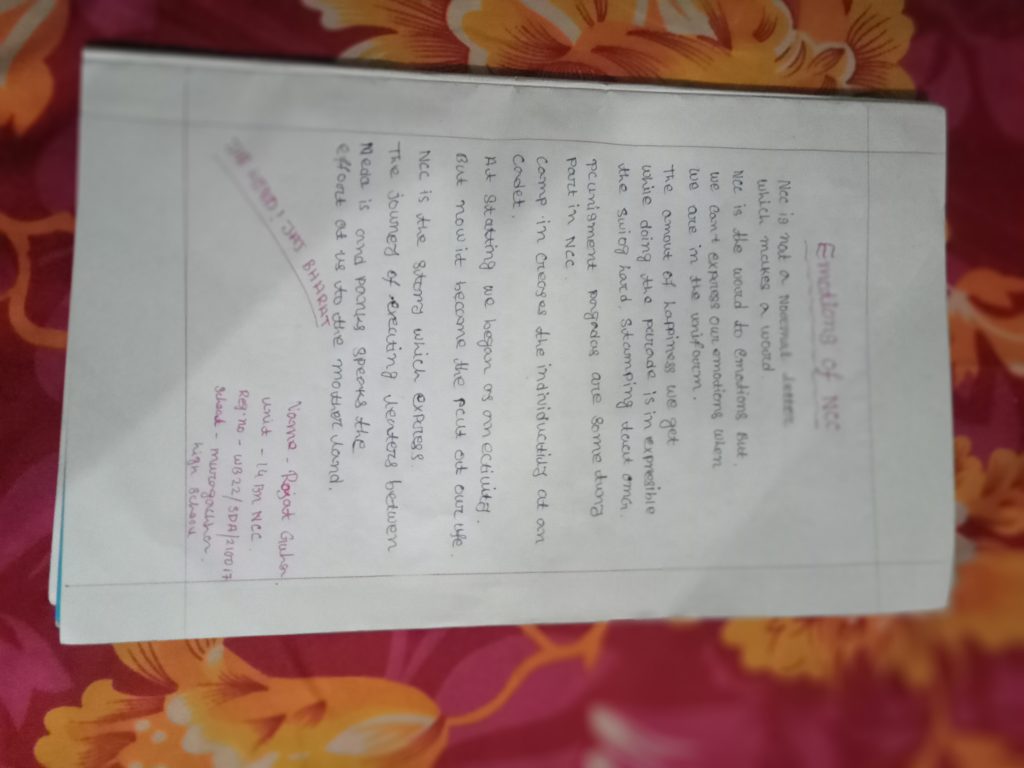 Emotions of NCC
NCC is not a Normal letter
which makes a word.
NCC is the word to emotions But.
we can't express our emotions when
we are in the uniform.
The amout of happiness we get
while doing the parade is in expresible
the swiong hard, stumping
are some dung
part in NCC.
Camp in creages the individuctiliy at an
Cadet.
At statting we began as an ectivity.
But now it become the part ot our life.
NCC is the story which express.
The journey of creating leaters betwen
Neda is and ranks speaks the
effort at us to the mother land.
JAI HIND! JAI BHARAT
Name - Rajat Guhon.
unit - 14 Bn NCC.
Reg:no - WB22/SDA/210017
School -
high School